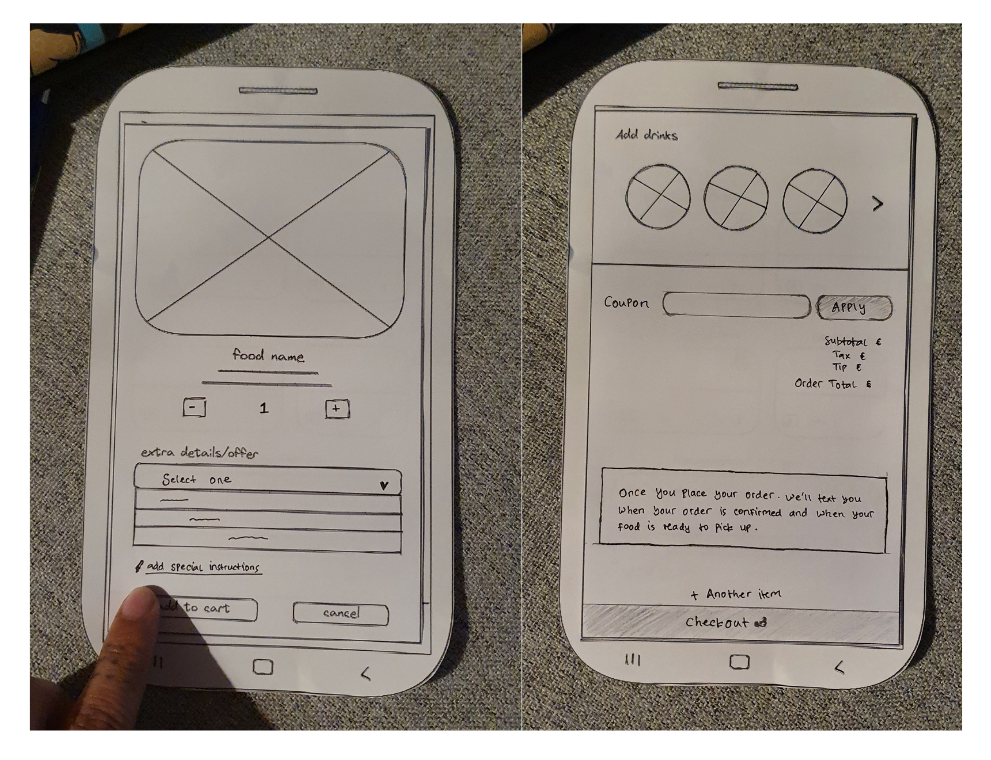 food name
- 1 +
extra details/offer
Select one
add special instructions
to cart
cancel
Add drinks
>
Coupon
APPLY
Subtotal €
Tax €
Tip €
Order Total €
Once you place your order. we'll text you
when your order is confirmed and when your
food is ready to pick up.
+ Another item
Checkout